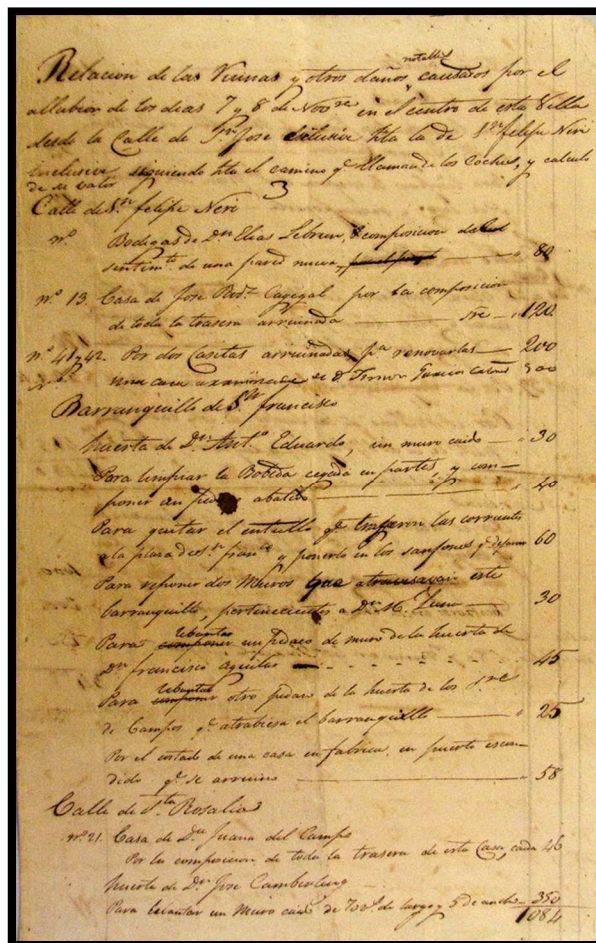 Relacion de las Ruinas y otros daños notables causados por el
allubion de los dias 7 y 8 de Novre en el centro de esta Villa
desde la Calle de Sn Jose exclusive hta la de Sn felipe Neri
inclusive siguendo hta el camino qe llaman de los coches, y calculo
de su valor
Calle de Sn felipe Neri
no Bodegas de Dn Elias Lebrun, composicion del
sentimto de una pared nueva 80
no 13 Casa de Jose por la composicion
de toda la trasera arruinada 120
no 41 y 42. Por dos Casitas arruinadas pa renovarlas 200
una casa 300
Barranquillo de Sn francisco
huerta de Dn Anto Eduardo, un muro caido 30
Para limpiar la Bobeda cegada en partes, y com-
poner un abatido 40
Para quitar el entullo qe trageron las corrientes
a la plaza de Sn franco y ponerlo en los 60
Para reponer dos Muros que atravesavan este
barranquillo, pertenecientes a Dn Ml 30
Para lebantar un pedaso de muro de la huerta de
Dn francisco aguilar 45
Para lebantar otro pedaso de la huerta de los Sres
de Campos qe atrabiesa el barranquillo 25
Por el costado de una casa en fabrica, en puerto escon-
dido qe se arruino 58
Calle de Sta Rosalia
no 21. Casa de Da Juana del Campo
Por la composicion de toda la trasera de esta Casa, caida 46
huerta de Dn Jose
Para lebantar un Muro caido de 70 vs de largo y 5 de ancho 350
1084